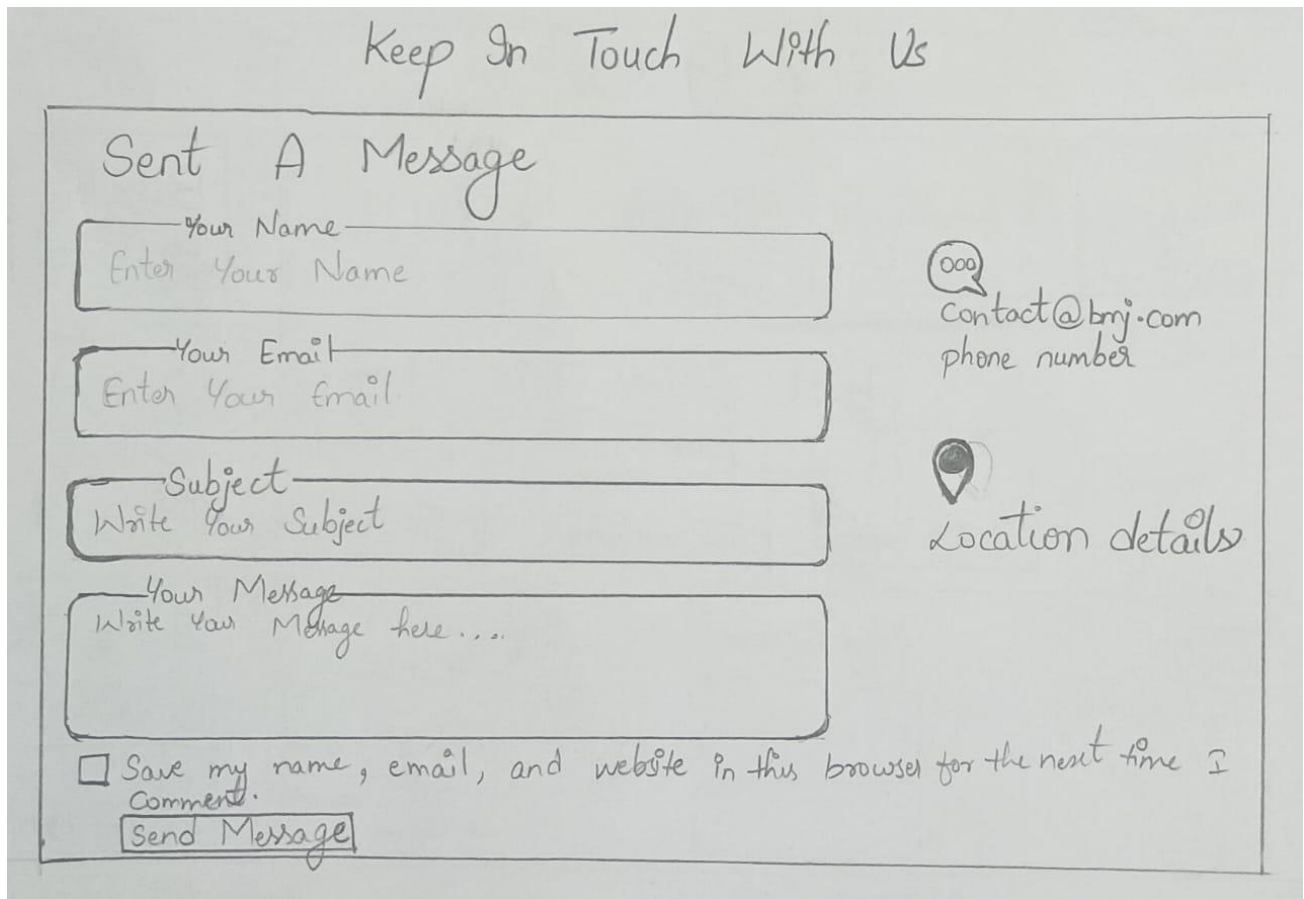 Keep In Touch With Us
Sent A Message
Your Name
Enter Your Name
Your Email
Enter Your Email
Subject
Write Your Subject
Your Message
Write Your Message here....
Save my name, email, and website in this browser for the next time I
Comment.
Send Message
contact@bmj.com
phone number
Location details